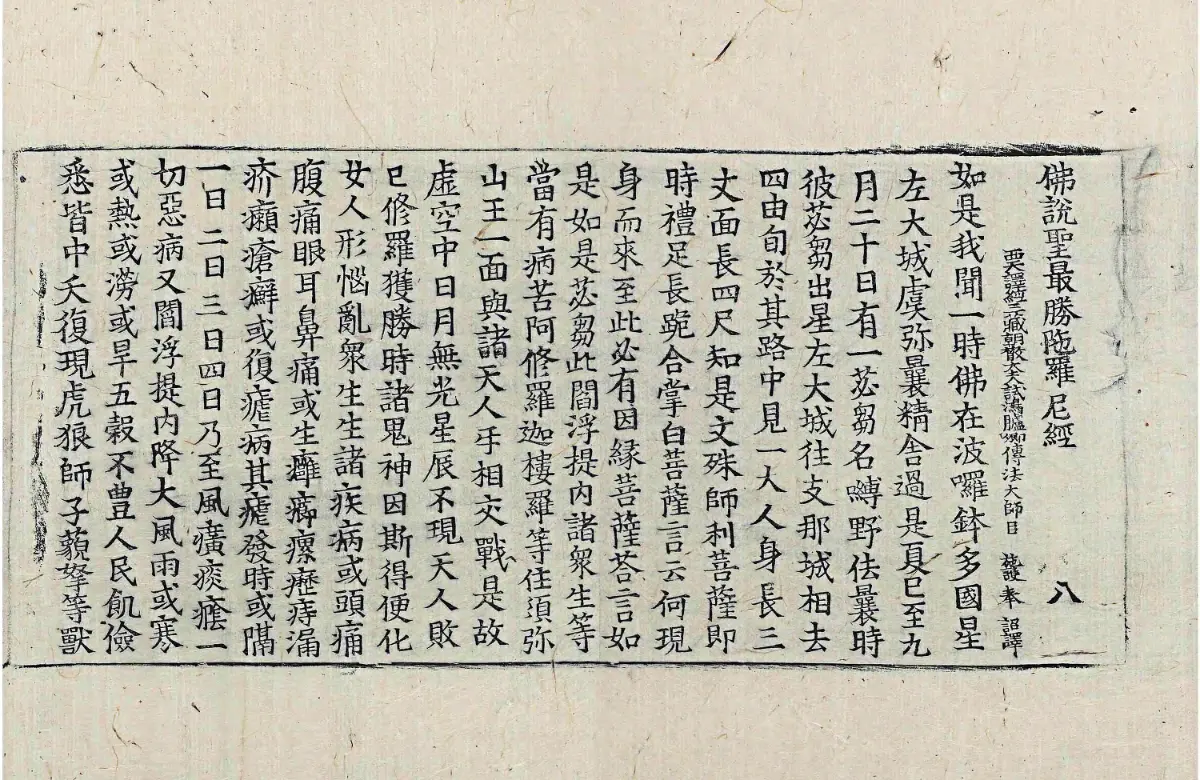 佛說聖最勝陁羅尼經 八
西天譯經三藏朝散大夫試鴻臚卿傳法大師臣 施護 奉 詔譯
如是我聞一時佛在波囉鉢多國星
左大城虞弥曩精舍過是夏巳至九
月二十日有一苾芻名嚩野佉曩時
彼苾芻出星左大城往支那城相去
四由旬於其路中見一大人身長三
丈面長四尺知是文殊師利菩薩即
時禮足長跪合掌白菩薩言云何現
身而來至此必有因縁菩薩荅言如
是如是苾芻此閻浮提内諸衆生等
當有病苦阿修羅迦樓羅等住須弥
山王一面與諸天人手相交戰是故
虚空中日月無光星辰不現天人敗
巳修羅獲勝時諸鬼神因斯得便化
女人形惱亂衆生生諸疾病或頭痛
腹痛眼耳鼻痛或生癰癤瘰癧痔漏
疥癩瘡癬或復瘧病其瘧發時或隔
一日二日三日四日乃至風癀痰癊一
切惡病又閻浮提内降大風雨或寒
或熱或澇或旱五穀不豊人民飢儉
悉皆中夭復現虎狼師子藐拏等獸